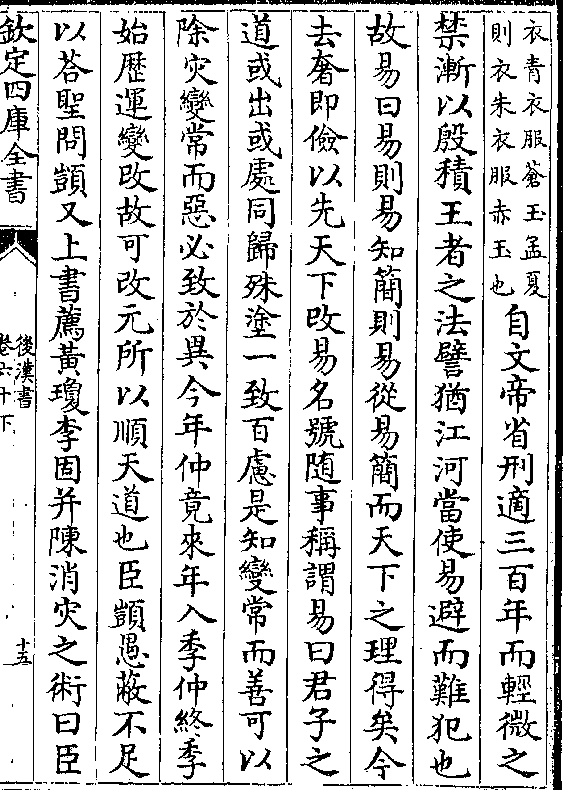 衣青衣服蒼玉孟夏
則衣朱衣服赤玉也
自文帝省刑適三百年而輕微之
禁漸以殷積王者之法譬猶江河當使易避而難犯也
故易曰易則易知簡則易從易簡而天下之理得矣今
去奢即儉以先天下改易名號隨事稱謂易曰君子之
道或出或處同歸殊塗一致百慮是知變常而善可以
除灾變常而惡必致於異今年仲竟來年入季仲終季
始歴運變改故可改元所以順天道也臣顗愚蔽不足
以荅聖問顗又上書薦黃瓊李固并陳消灾之術曰臣
欽定四庫全書
後漢書
卷六十下
十五